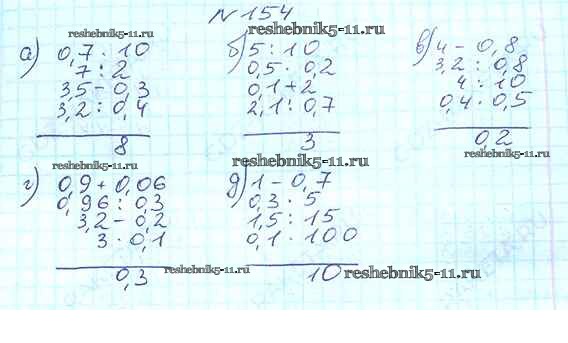 N 154
reshebnik5-11.ru
а) 0,7 · 10
7 : 2
3,5 - 0,3
3,2 : 0,4
8
reshebnik5-11.ru
б) 5 : 10
0,5 · 0,2
0,1 + 2
2,1 : 0,7
3
reshebnik5-11.ru
в) 4 - 0,8
3,2 : 0,8
4 : 10
0,4 · 0,5
0,2
reshebnik5-11.ru
reshebnik5-11.ru
г) 0,9 + 0,06
0,96 : 0,3
3,2 - 0,2
3 · 0,1
0,3
reshebnik5-11.ru
reshebnik5-11.ru
д) 1 - 0,7
0,3 · 5
1,5 : 15
0,1 · 100
10
reshebnik5-11.ru